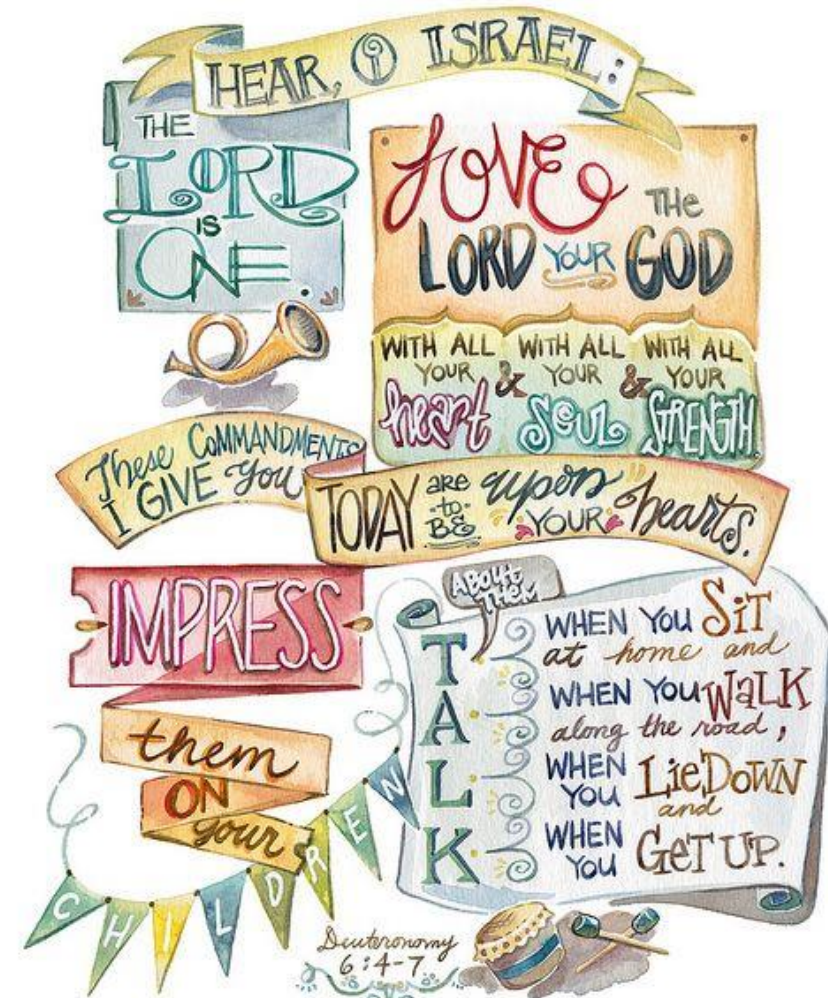 HEAR, O ISRAEL:
THE
LORD
IS
ONE.
LOVE THE
LORD YOUR GOD
WITH ALL YOUR heart
&
WITH ALL YOUR SOUL
&
WITH ALL YOUR STRENGTH
These COMMANDMENTS
I GIVE you
TODAY are to BE upon YOUR hearts.
IMPRESS
them
ON
your
CHILDREN
TALK
ABOUT
THEM
WHEN YOU SiT
at home and
WHEN YOU WALK
along the road,
WHEN YOU Lie DOWN
and
WHEN YOU GeT UP.
Deuteronomy
6:4-7